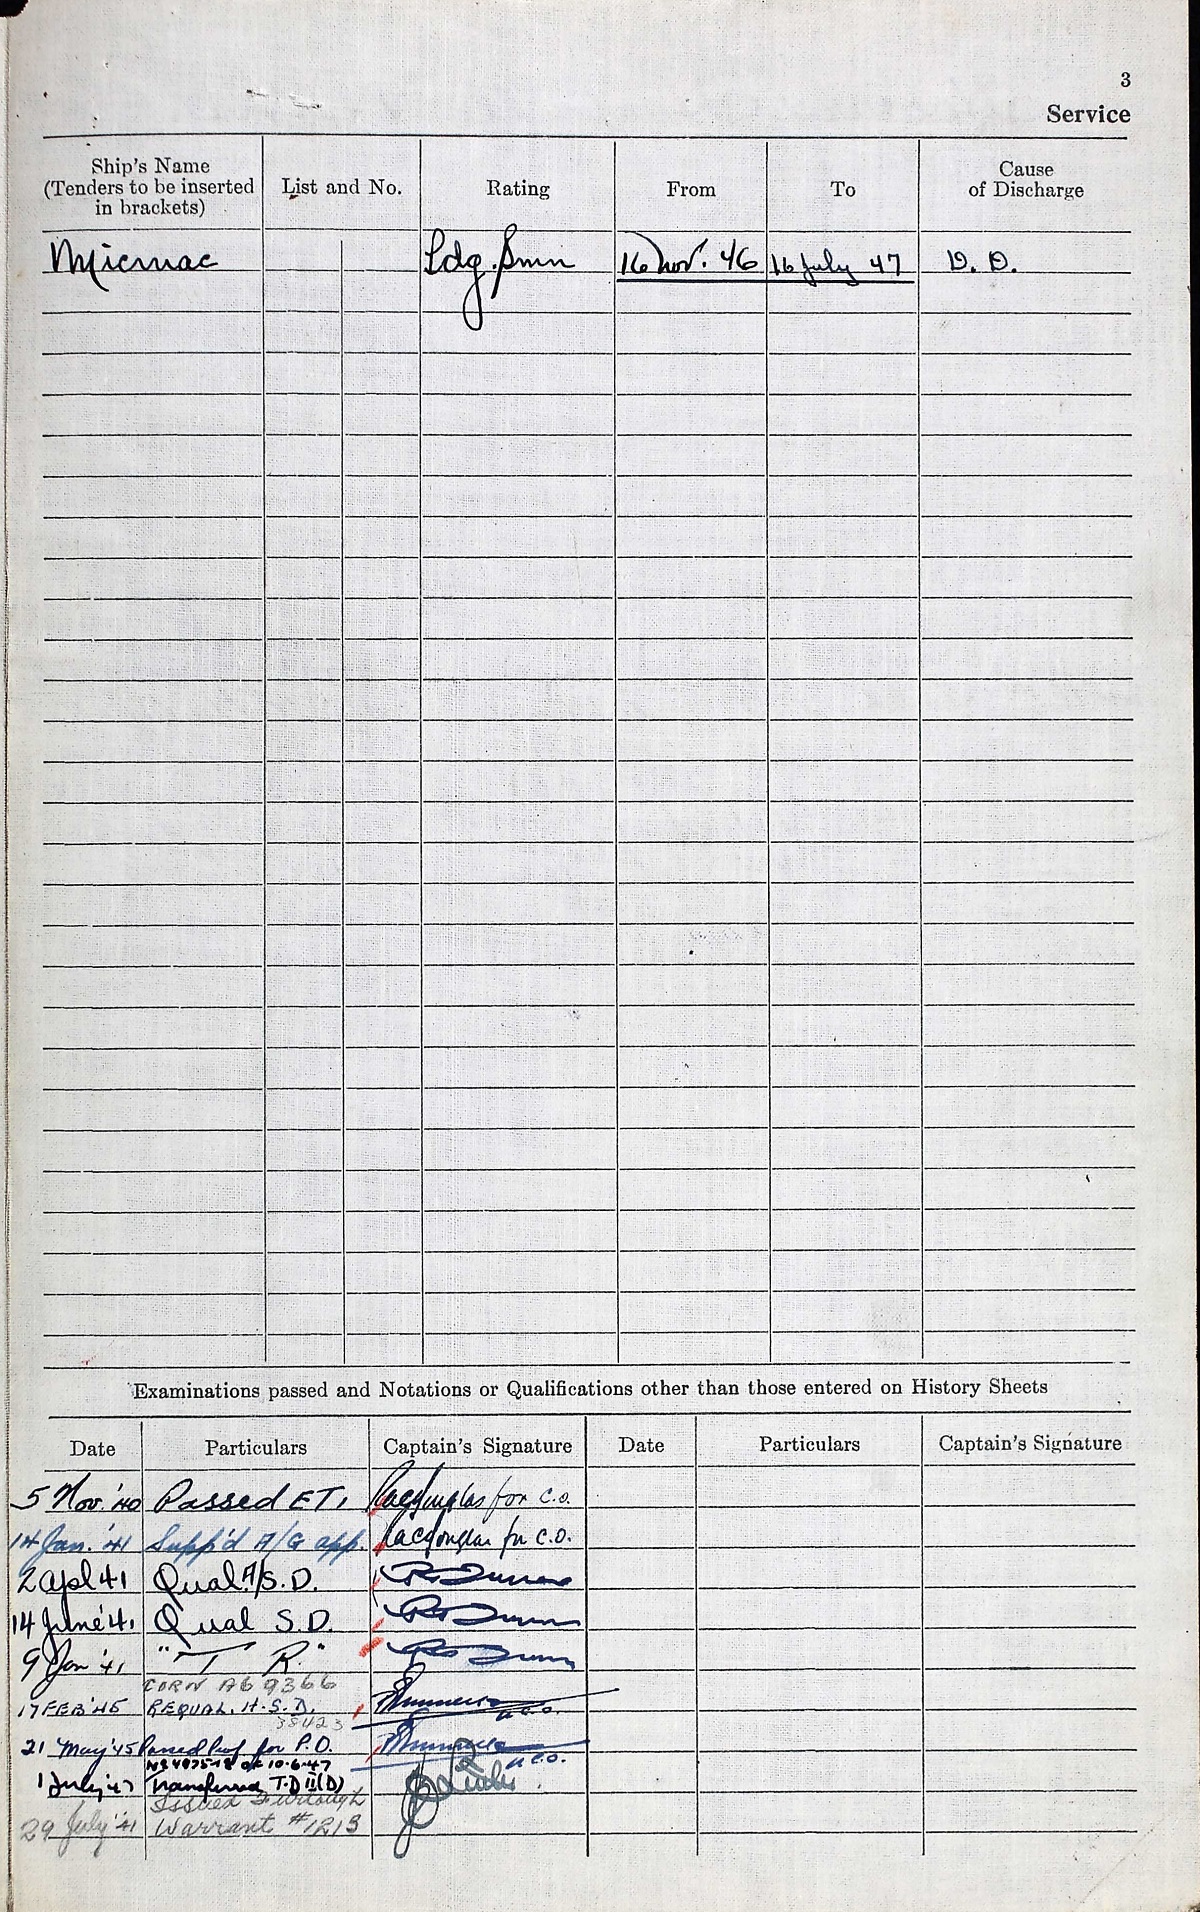 3
Service
Ship's Name
(Tenders to be inserted
in brackets)
List and No.
Rating
From
To
Cause
of Discharge
Micmac Ldg. Smn 16 Nov. 46 16 July 47 D. D.
Examinations passed and Notations or Qualifications other than those entered on History Sheets
Date Particulars Captain's Signature Date Particulars Captain's Signature
5 Nov. '40 Passed ET, for C.O.
14 Jan. '41 Supp'd A/G app. for C.O.
2 Apl 41 Qual. A/S.D.
14 June '41 Qual S.D.
9 Jan '41 " T R"
CORN A6 9366
17 FEB '45 REQUAL. H.S.D.
38423
21 May '45 Passed Prof for P.O.
of 10-6-47
1 July '47 Transferred T.D II (D)
Issued Furlough
29 July '41 Warrant #1213